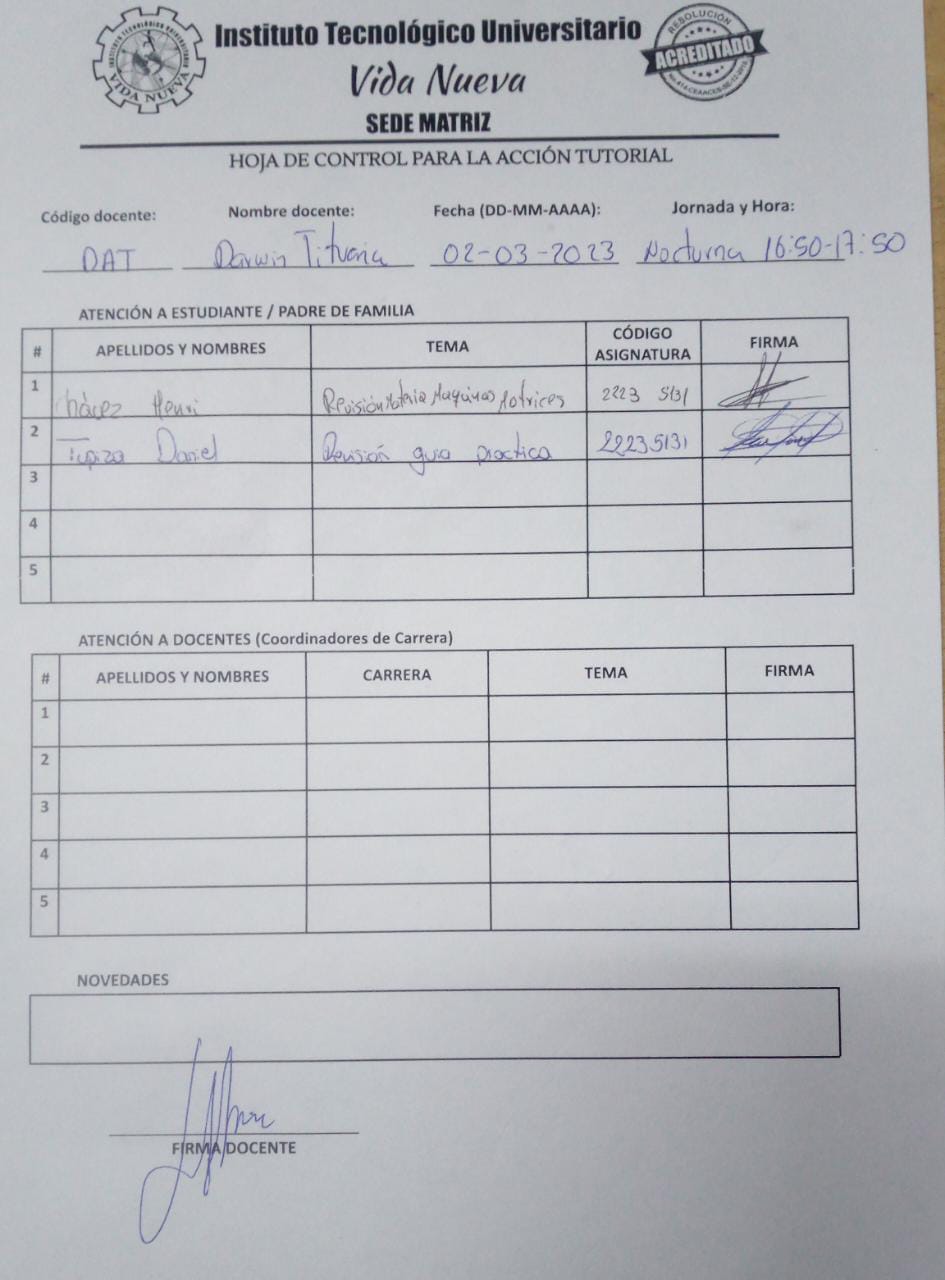 INSTITUTO TECNOLÓGICO UNIVERSITARIO
VIDA NUEVA
Instituto Tecnológico Universitario
Vida Nueva
SEDE MATRIZ
RESOLUCIÓN
ACREDITADO
HOJA DE CONTROL PARA LA ACCIÓN TUTORIAL
Código docente: Nombre docente: Fecha (DD-MM-AAAA): Jornada y Hora:
DAT Darwin Tituaña 02-03-2023 Nocturna 16:50-17:50
ATENCIÓN A ESTUDIANTE / PADRE DE FAMILIA
# APELLIDOS Y NOMBRES TEMA CÓDIGO ASIGNATURA FIRMA
1 Chávez Henri Revisión Materia Maquinas Motrices 2223 5131
2 Tupiza Daniel Revisión guia practica 22235131
3
4
5
ATENCIÓN A DOCENTES (Coordinadores de Carrera)
# APELLIDOS Y NOMBRES CARRERA TEMA FIRMA
1
2
3
4
5
NOVEDADES
FIRMA DOCENTE